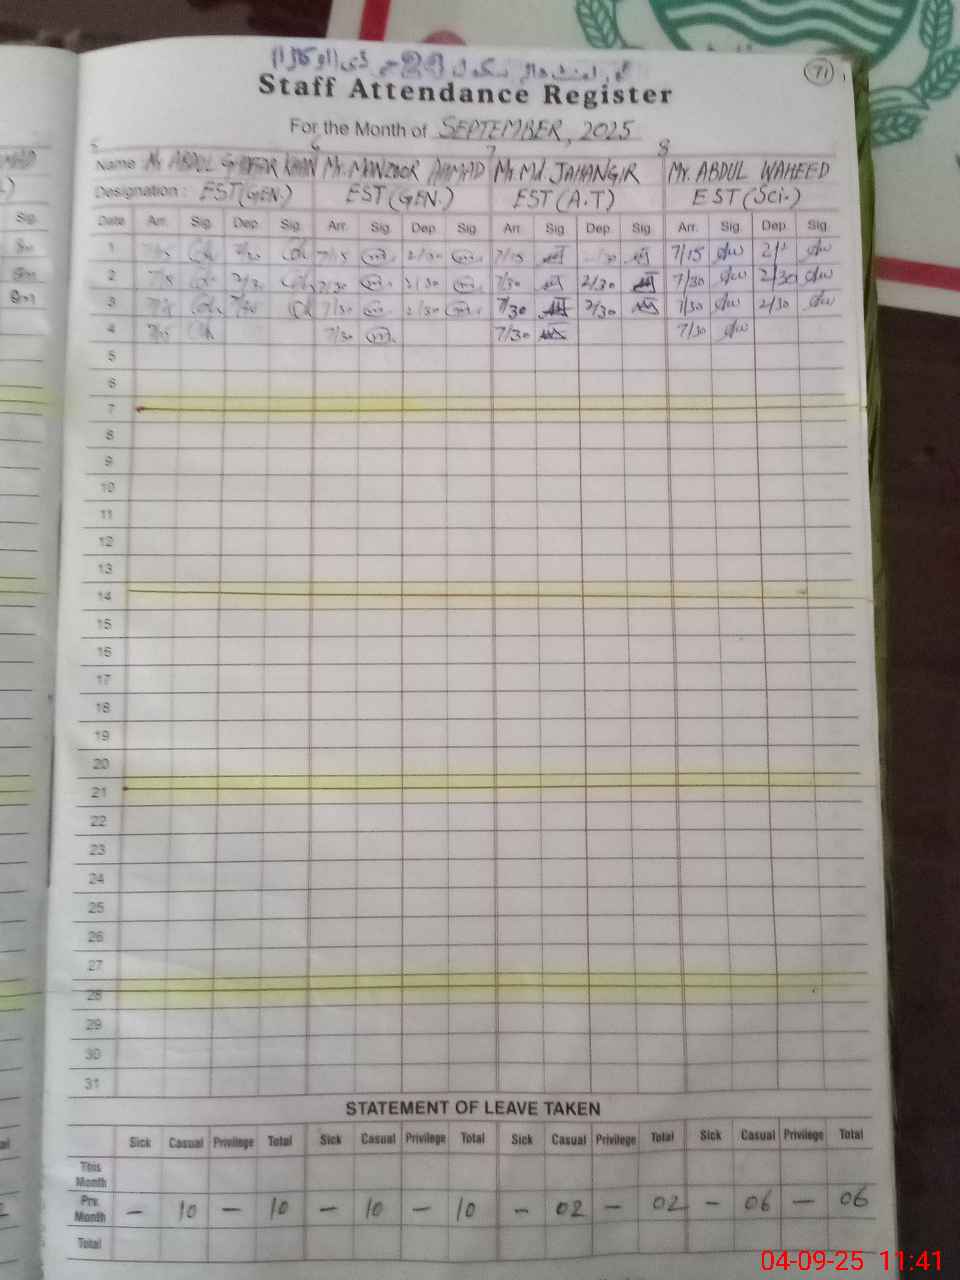 گورنمنٹ ہائی سکول 24 جی ڈی (اوکاڑا)
71
Staff Attendance Register
For the Month of SEPTEMBER, 2025
5 6 7 8
Name Mr ABDUL GHAFFAR KHAN Mr. MANZOOR AHMAD Mr. Md. JAHANGIR Mr. ABDUL WAHEED
Designation: EST(GEN.) EST(GEN.) EST(A.T) EST(Sci.)
Date Arr. Sig. Dep. Sig. Arr. Sig. Dep. Sig. Arr. Sig. Dep. Sig. Arr. Sig. Dep. Sig.
1 7/15 7/15 2/30 7/15 7/15
2 7/30 2/30 7/30 2/30 7/30 2/30
3 7/30 2/30 7/30 2/30 7/30 2/30
4 7/30 7/30 7/30
5
6
7
8
9
10
11
12
13
14
15
16
17
18
19
20
21
22
23
24
25
26
27
28
29
30
31
STATEMENT OF LEAVE TAKEN
Sick Casual Privilege Total Sick Casual Privilege Total Sick Casual Privilege Total Sick Casual Privilege Total
This Month
Prv. Month – 10 – 10 – 10 – 10 – 02 – 02 – 06 – 06
Total
04-09-25 11:41